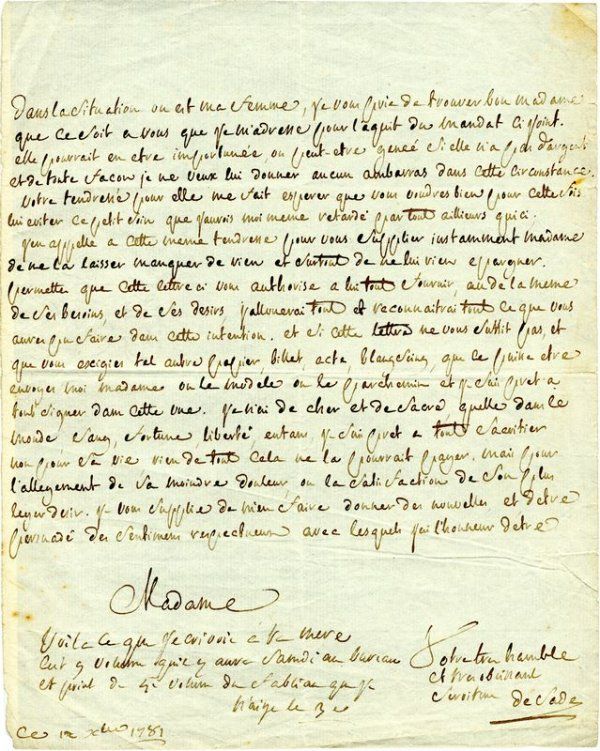 Dans la situation ou est ma femme, je vous prie de trouver bon madame
que ce soit a vous que je m'adresse pour l'aquit du mandat ci joint.
elle pourrait en etre importunée, ou peut-etre geneé si elle n'a pas d'argent
et de toute facon je ne veux lui donner aucun embarras dans cette circonstance.
votre tendresse pour elle me fait esperer que vous voudres bien pour cette fois
lui eviter ce petit soin que j'aurois moi meme retardé par tout ailleurs qu'ici.
j'en appelle a cette meme tendresse pour vous supplier instamment madame
de ne la laisser manquer de rien et surtout de ne lui rien epargner.
permette que cette lettre ci vous authorise a lui tout fournir, au dela meme
de ses besoins, et de ses desirs, j'allouerai tout et reconnaitrai tout ce que vous
aures pu faire dans cette intention. et si cette lettre ne vous suffit pas, et
que vous exigies tel autre papier, billet, acte blanc seing, que ce puisse etre
envoyes moi madame ou le modele ou le parchemin et je suis pret a
tout signer dans cette vue. je n'ai de cher et de sacré, qu'elle dans le
monde sang, fortune liberté, enfans, je suis pret a tout sacrifier
non pour sa vie rien de tout cela ne la pourrait payer. mais pour
l'allegement de sa moindre douleur ou la satisfaction de son plus
leger desir. je vous supplie de m'en faire donner des nouvelles et d'etre
persuadé des sentimens respectueux avec lesquels j'ai l'honneur d'etre
Madame
Voila ce que j'ecrivois à ta mere
votre tres humble
et tres obeissant
serviteur de Sade
Ce 12 xbre 1781